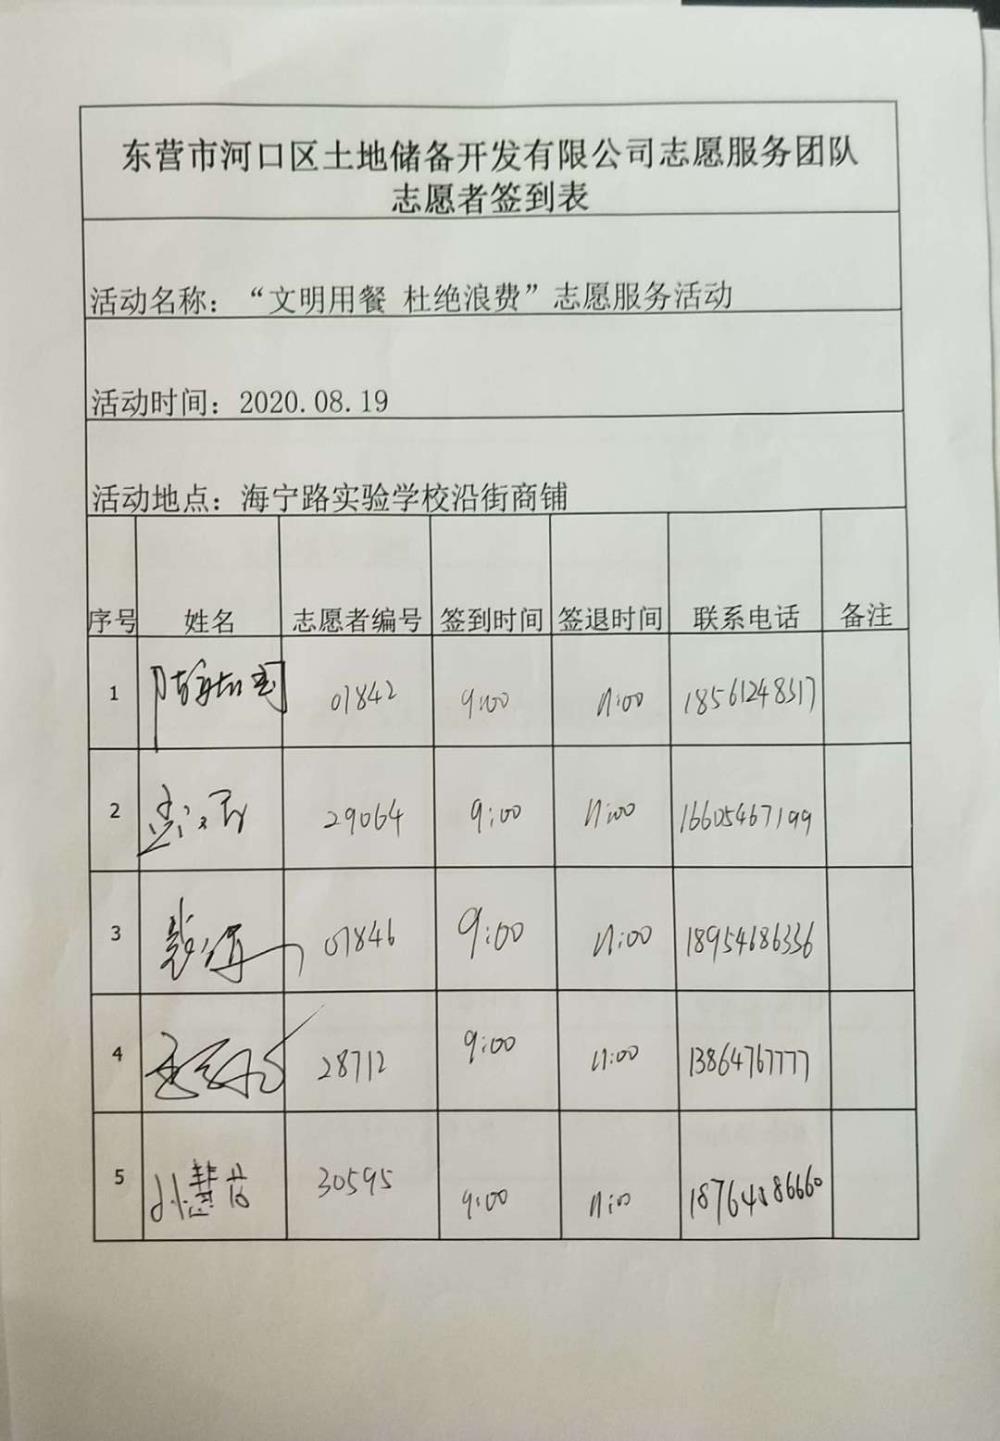 东营市河口区土地储备开发有限公司志愿服务团队
志愿者签到表
活动名称：“文明用餐 杜绝浪费”志愿服务活动
活动时间：2020.08.19
活动地点：海宁路实验学校沿街商铺
序号 姓名 志愿者编号 签到时间 签退时间 联系电话 备注
1 01842 9:00 11:00 18561248317
2 29064 9:00 11:00 16605467199
3 01846 9:00 11:00 18954686336
4 28712 9:00 11:00 13864767777
5 30595 9:00 11:00